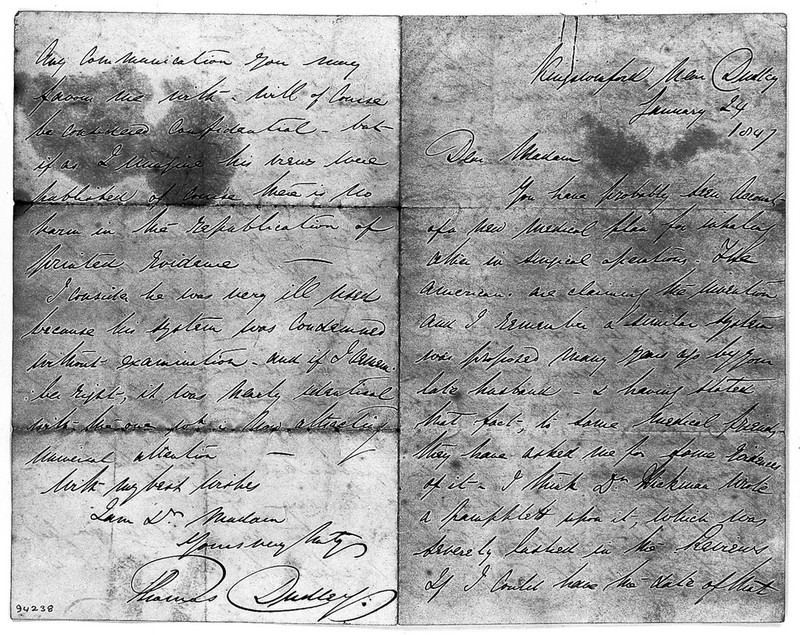 Kingswinford Near Dudley
January 24
1847
Dear Madam
You have probably seen accounts
of a new medical plan for inhaling
ether in surgical operations. The
Americans are claiming the invention
and I remember a similar system
was proposed many years ago by your
late husband - & having stated
that fact, to some medical friends,
they have asked me for some evidence
of it - I think Dr Hickman wrote
a pamphlett upon it, which was
severely lashed in the Reviews
If I could have the date of that
Any Communication you may
favour me with - will of course
be considered Confidential - but
if as I imagine his views were
published of course there is no
harm in the republication of
printed evidence —
I consider he was very ill used
because his system was condemned
without examination - and if I remem
:ber right, it was nearly identical
with the one wh is now attracting
universal attention —
With my best wishes
I am Dr Madam
Yours very truly
Thomas Dudley.
94238